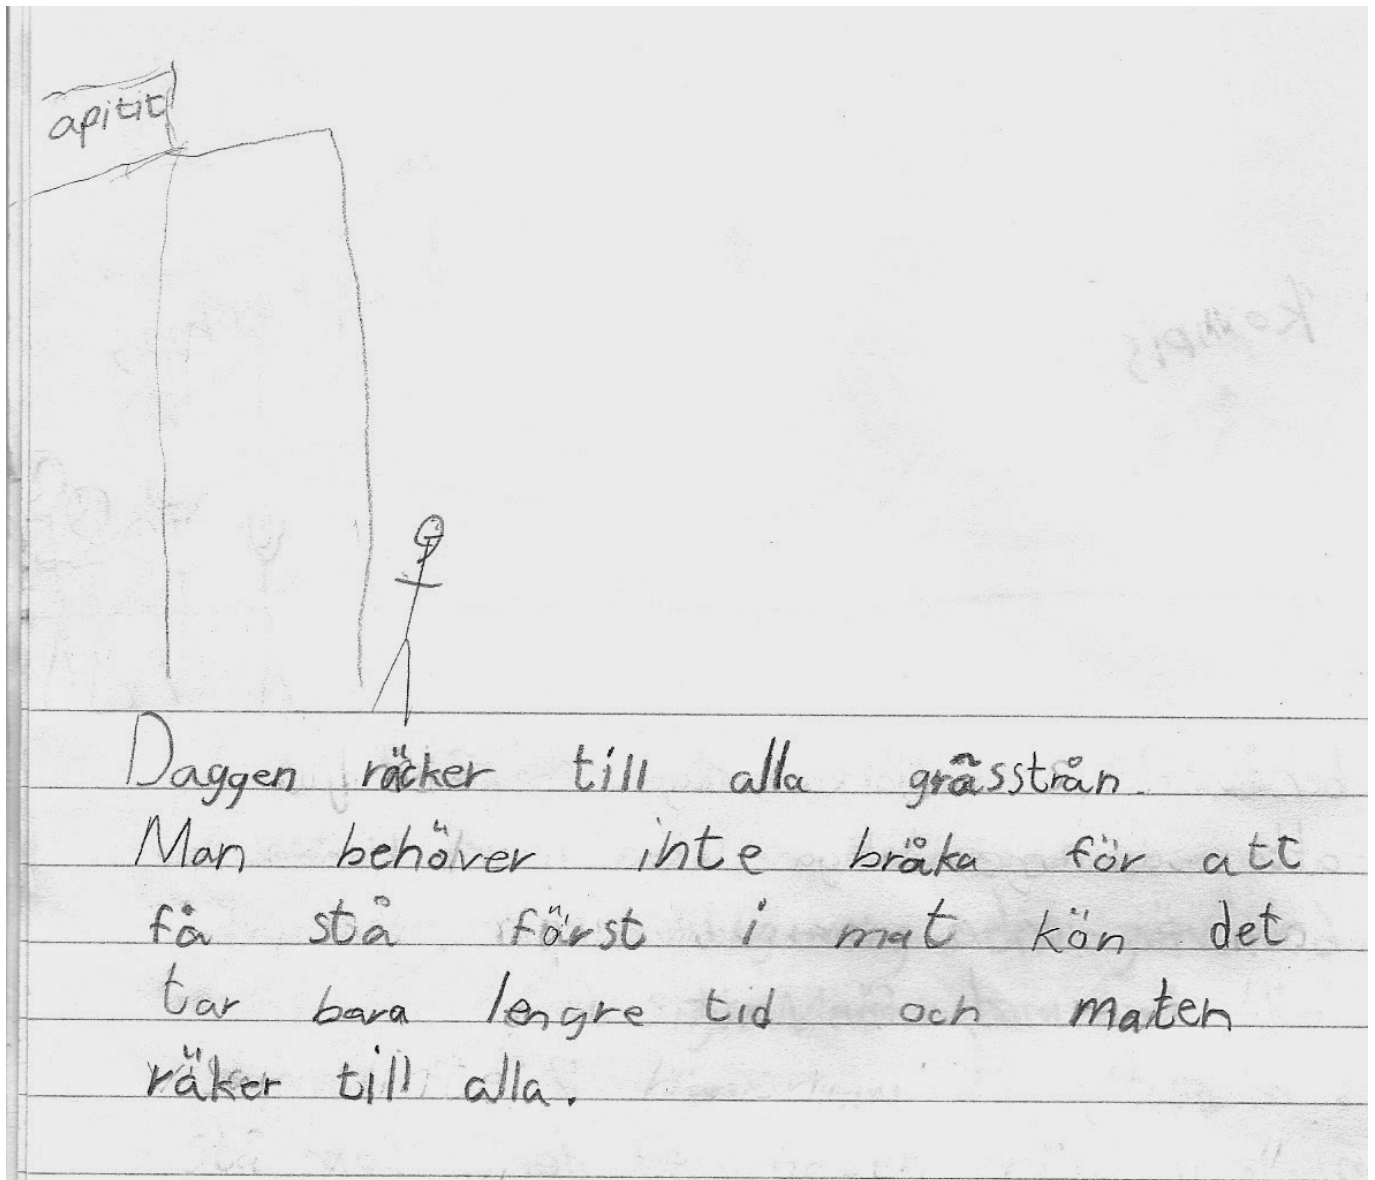 apitit
Daggen räcker till alla grässtrån.
Man behöver inte bråka för att
få stå först i mat kön det
tar bara lengre tid och maten
räker till alla.
kompis